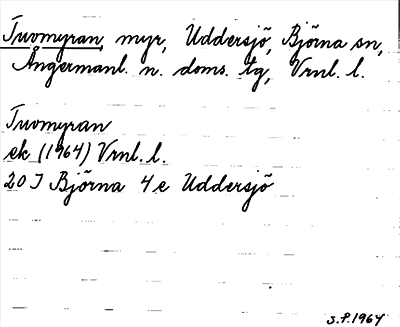 Tuvomyran, myr, Uddersjö, Björna sn,
Ångermanl. n. doms. tg, Vrnl. l.
Tuvomyran
ek (1964) Vrnl. l.
20 J Björna 4e Uddersjö
S.P. 1967